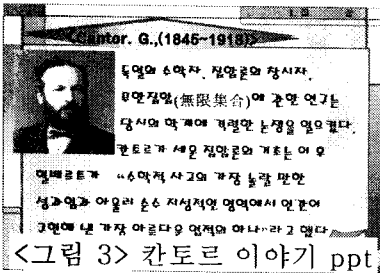 <Cantor. G.,(1845~1918)>
독일의 수학자. 집합론의 창시자.
무한집합(無限集合)에 관한 연구는
당시의 학계에 격렬한 논쟁을 일으켰다.
칸토르가 세운 집합론의 기초는 이 후
힐베르트가 “수학적 사고의 가장 놀랄 만한
성과임과 아울러 순수 지성적인 영역에서 인간이
구현해 낸 가장 아름다운 업적의 하나”라고 했다
<그림 3> 칸토르 이야기 ppt